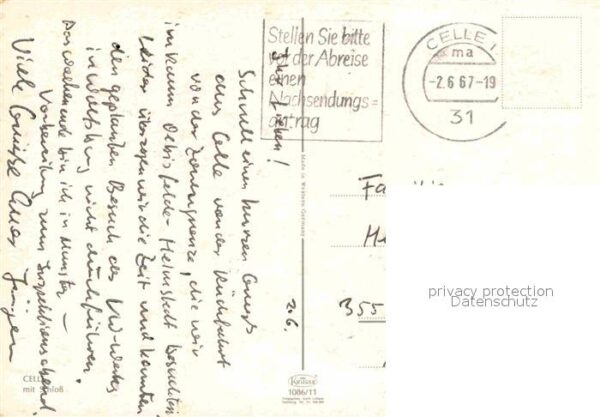 Stellen Sie bitte
vor der Abreise
einen
Nachsendungs=
antrag
CELLE 1
ma
-2.6.67-19
31
Ihr Lieben!
Schnell einen kurzen Gruß
aus Celle von der Rückfahrt
von der Zonengrenze, die wir
im Raum Oebisfelde-Helmstedt besuchten.
Leider überzogen wir die Zeit und konnten
den geplanten Besuch der VW-Werke
in Wolfsburg nicht durchführen.
Das Wochenende bin ich in Munster –
Vorbereitung zum
Viele Grüße Euer Jürgen
2.6.
Made in Western Germany
Fa
355
privacy protection
Datenschutz
CELLE
mit Schloß
1086/11